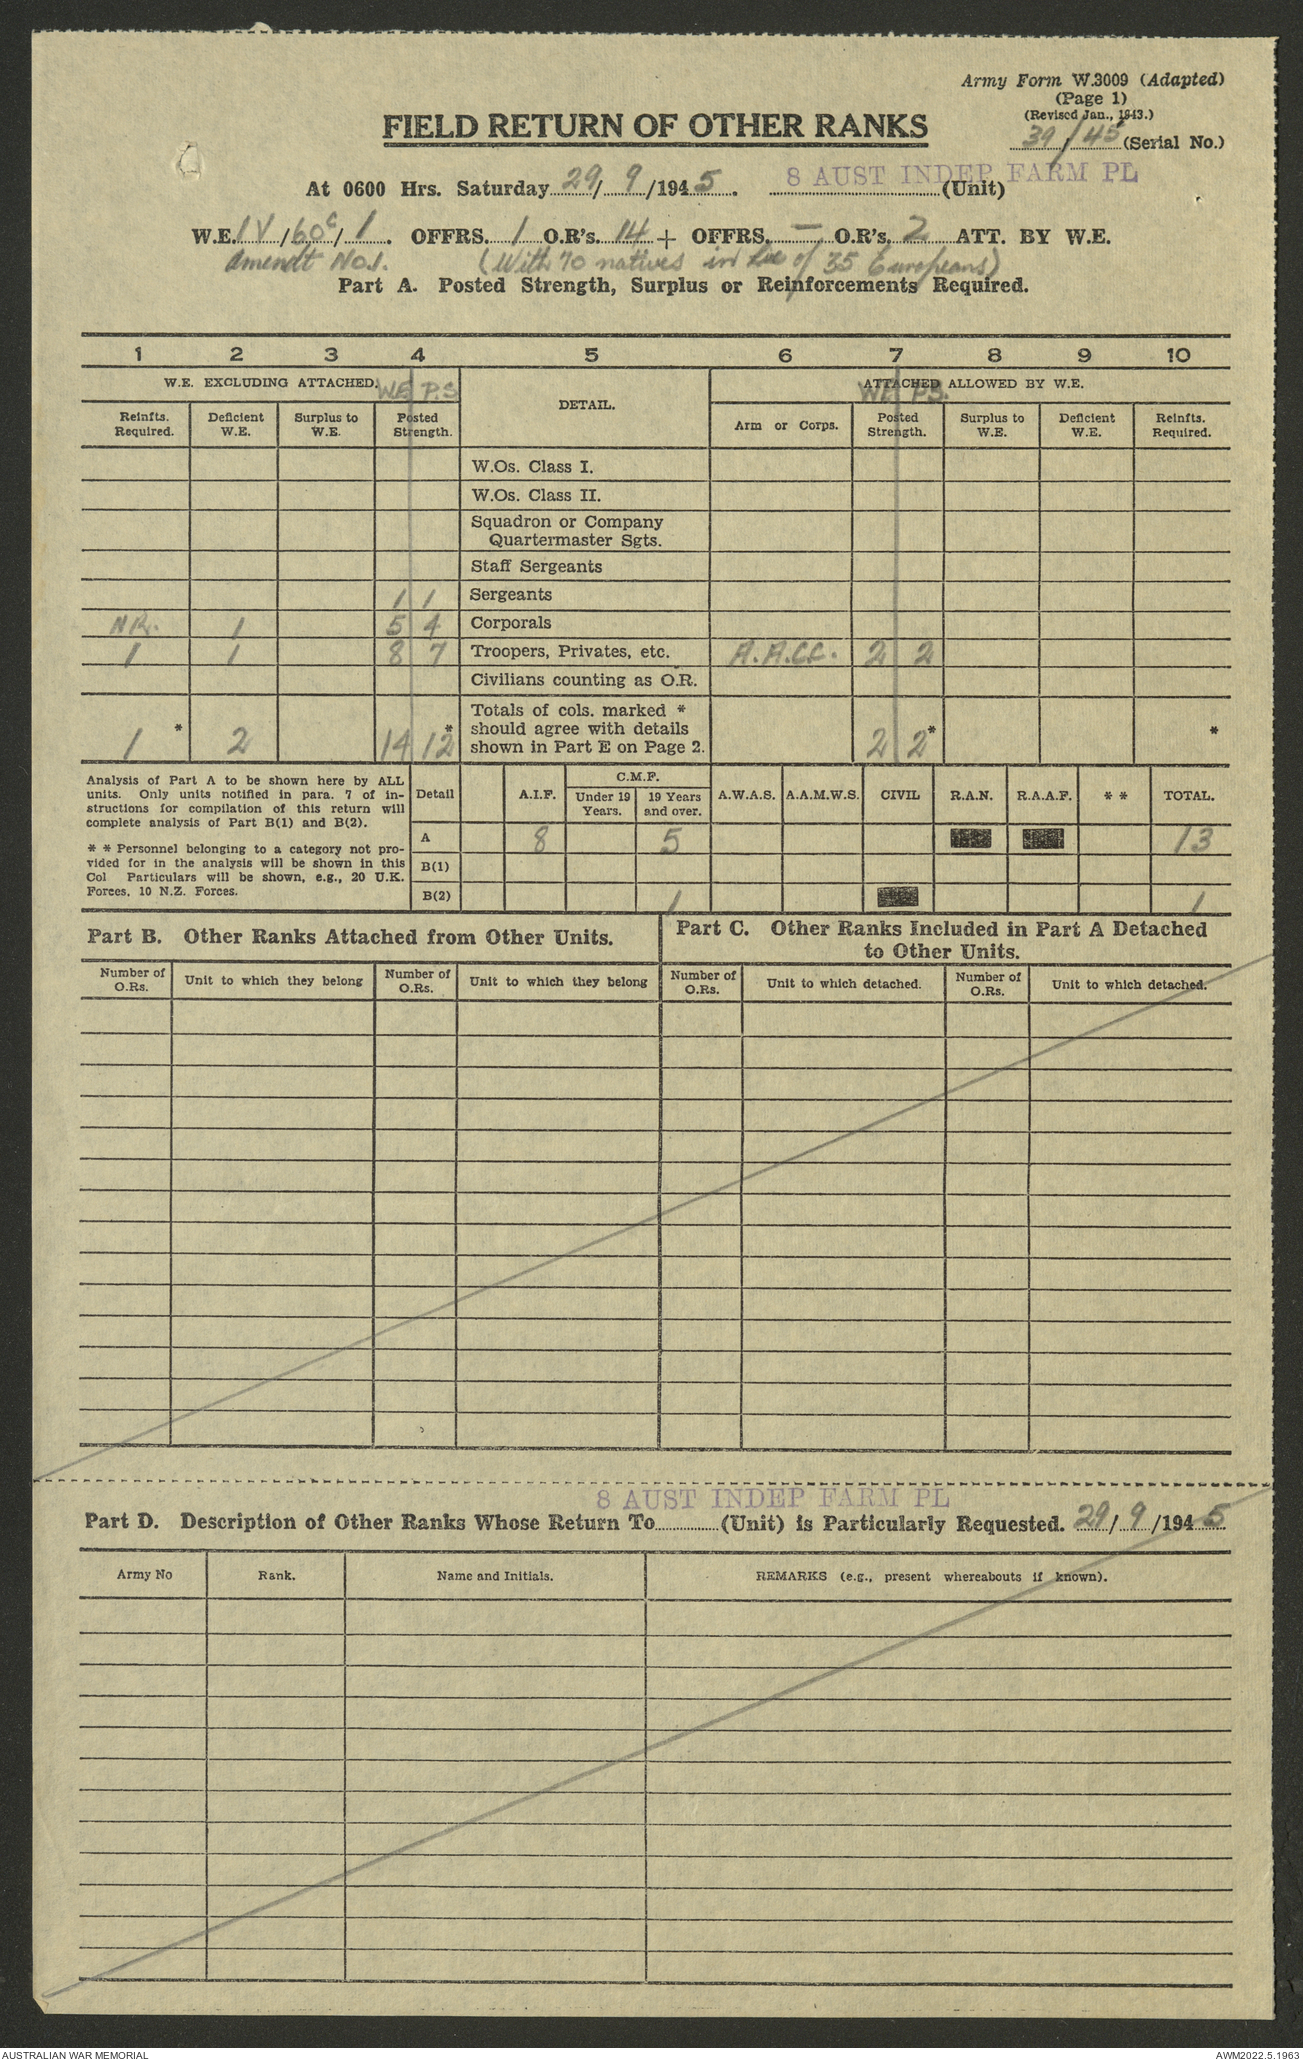 Army Form W.3009 (Adapted)
(Page 1)
(Revised Jan., 1943.)
39/45 (Serial No.)
FIELD RETURN OF OTHER RANKS
At 0600 Hrs. Saturday 29/9/1945. 8 AUST INDEP FARM PL (Unit)
W.E. IV/60c/1. OFFRS. 1 O.R's. 14 + OFFRS. — O.R's. 2 ATT. BY W.E.
Amendt No1. (With 70 natives in lieu of 35 Europeans)
Part A. Posted Strength, Surplus or Reinforcements Required.
1 2 3 4 5 6 7 8 9 10
W.E. EXCLUDING ATTACHED. W.E P.S DETAIL. ATTACHED ALLOWED BY W.E. WE PS.
Reinfts. Required. Deficient W.E. Surplus to W.E. Posted Strength. Arm or Corps. Posted Strength. Surplus to W.E. Deficient W.E. Reinfts. Required.
W.Os. Class I.
W.Os. Class II.
Squadron or Company
Quartermaster Sgts.
Staff Sergeants
1 1 Sergeants
NR. 1 5 4 Corporals
1 1 8 7 Troopers, Privates, etc. A.A.CC. 2 2
Civilians counting as O.R.
Totals of cols. marked *
should agree with details
shown in Part E on Page 2.
1 * 2 14 12 * 2 2 * *
Analysis of Part A to be shown here by ALL
units. Only units notified in para. 7 of in-
structions for compilation of this return will
complete analysis of Part B(1) and B(2).
* * Personnel belonging to a category not pro-
vided for in the analysis will be shown in this
Col Particulars will be shown, e.g., 20 U.K.
Forces, 10 N.Z. Forces.
Detail A.I.F. C.M.F. Under 19 Years. 19 Years and over. A.W.A.S. A.A.M.W.S. CIVIL R.A.N. R.A.A.F. * * TOTAL.
A 8 5 13
B(1)
B(2) 1 1
Part B. Other Ranks Attached from Other Units.
Part C. Other Ranks Included in Part A Detached
to Other Units.
Number of O.Rs. Unit to which they belong Number of O.Rs. Unit to which they belong Number of O.Rs. Unit to which detached. Number of O.Rs. Unit to which detached.
8 AUST INDEP FARM PL
Part D. Description of Other Ranks Whose Return To (Unit) is Particularly Requested. 29/9/1945
Army No Rank. Name and Initials. REMARKS (e.g., present whereabouts if known).
AUSTRALIAN WAR MEMORIAL AWM2022.5.1963